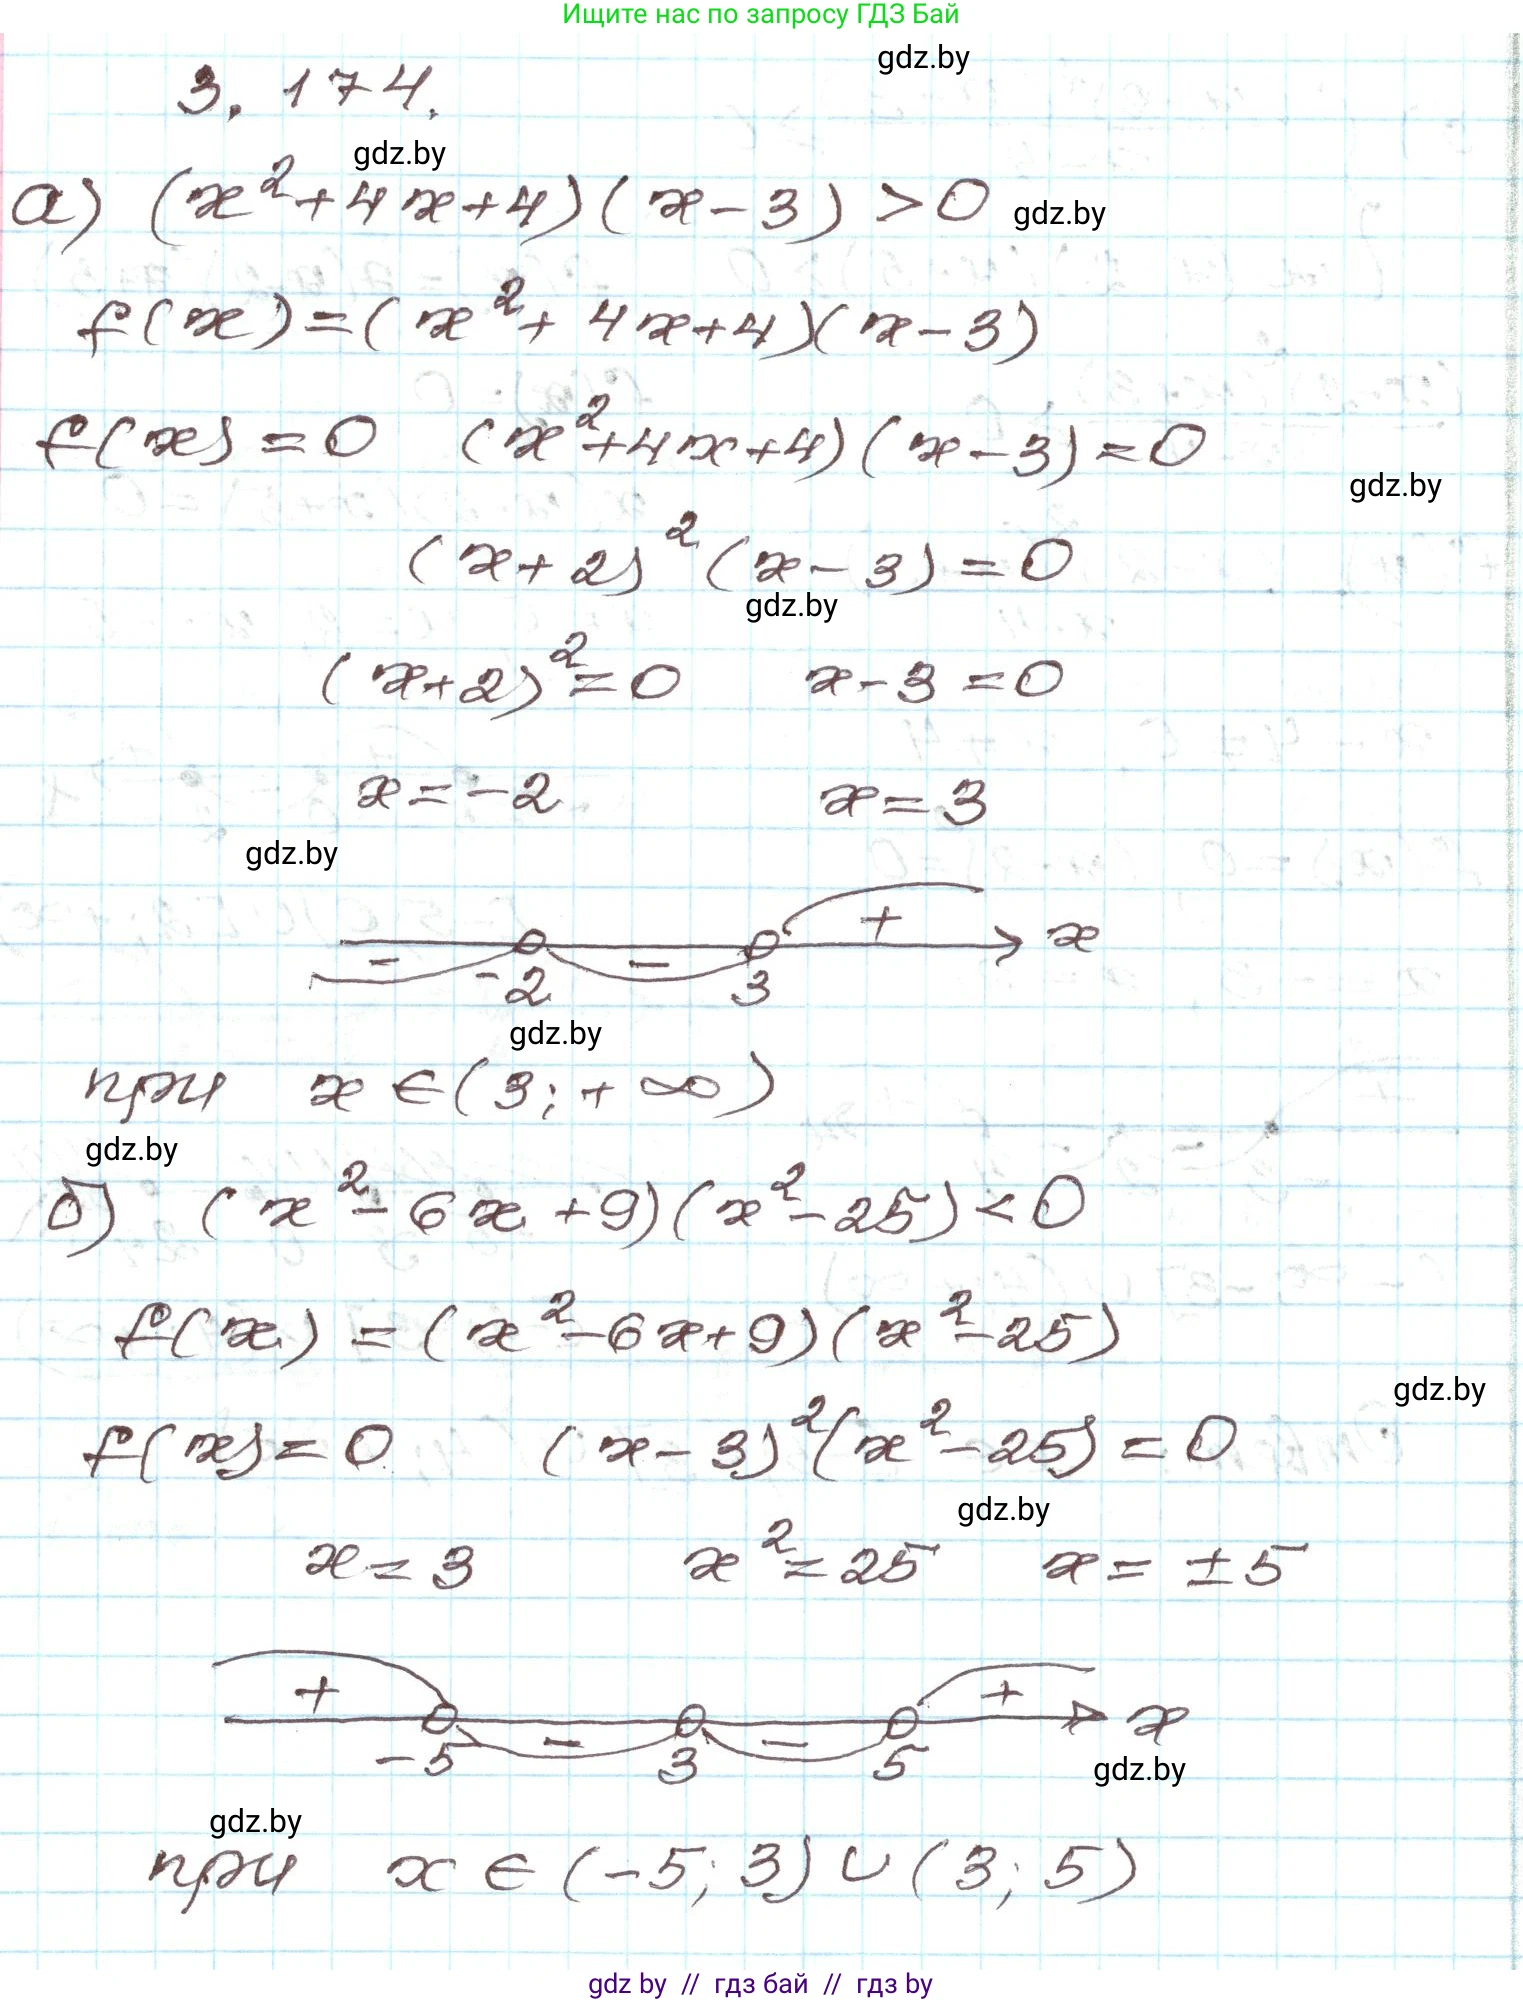 Ищите нас по запросу ГДЗ Бай
gdz.by
3.174.
gdz.by
а) (x²+4x+4)(x-3)>0
gdz.by
f(x)=(x²+4x+4)(x-3)
f(x)=0 (x²+4x+4)(x-3)=0
gdz.by
(x+2)²(x-3)=0
gdz.by
(x+2)²=0 x-3=0
x=-2 x=3
gdz.by
- - + x
-2 3
gdz.by
при x∈(3;+∞)
gdz.by
б) (x²-6x+9)(x²-25)<0
f(x)=(x²-6x+9)(x²-25)
gdz.by
f(x)=0 (x-3)²(x²-25)=0
gdz.by
x=3 x²=25 x=±5
+ - - + x
-5 3 5
gdz.by
gdz.by
при x∈(-5;3)∪(3;5)
gdz by // гдз бай // гдз by